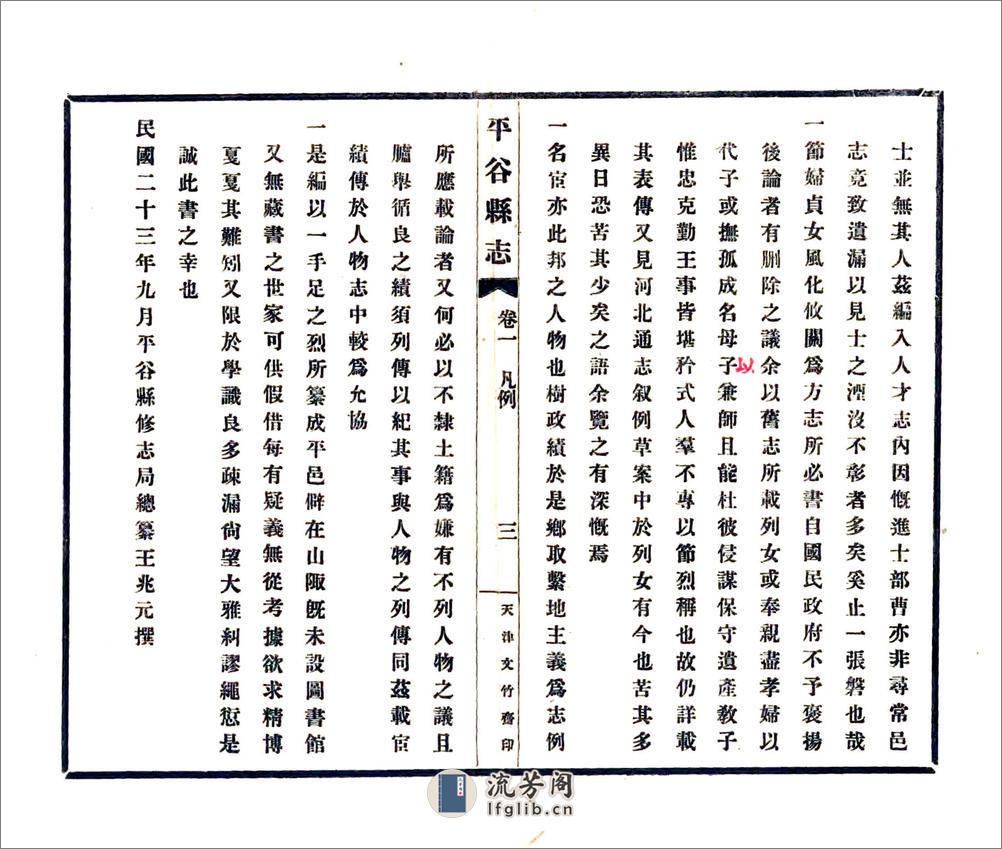 士並無其人茲編入人才志內因慨進士部曹亦非尋常邑
志竟致遺漏以見士之湮沒不彰者多矣奚止一張磐也哉
一節婦貞女風化攸關爲方志所必書自國民政府不予褒揚
後論者有删除之議余以舊志所載列女或奉親盡孝婦以
代子或撫孤成名母子以兼師且能杜彼侵謀保守遺產敎子
惟忠克勤王事皆堪矜式人羣不專以節烈稱也故仍詳載
其表傳又見河北通志叙例草案中於列女有今也苦其多
異日恐苦其少矣之語余覽之有深慨焉
一名宦亦此邦之人物也樹政績於是鄉取繫地主義爲志例
平谷縣志
卷一
凡例
三
天津文竹齋印
所應載論者又何必以不隸土籍爲嫌有不列人物之議且
臚舉循良之績須列傳以紀其事與人物之列傳同茲載宦
績傳於人物志中較爲允協
一是編以一手足之烈所纂成平邑僻在山陬既未設圖書館
又無藏書之世家可供假借每有疑義無從考據欲求精博
戛戛其難矧又限於學識良多疎漏尙望大雅糾謬繩愆是
誠此書之幸也
民國二十三年九月平谷縣修志局總纂王兆元撰
流芳阁
lfglib.cn